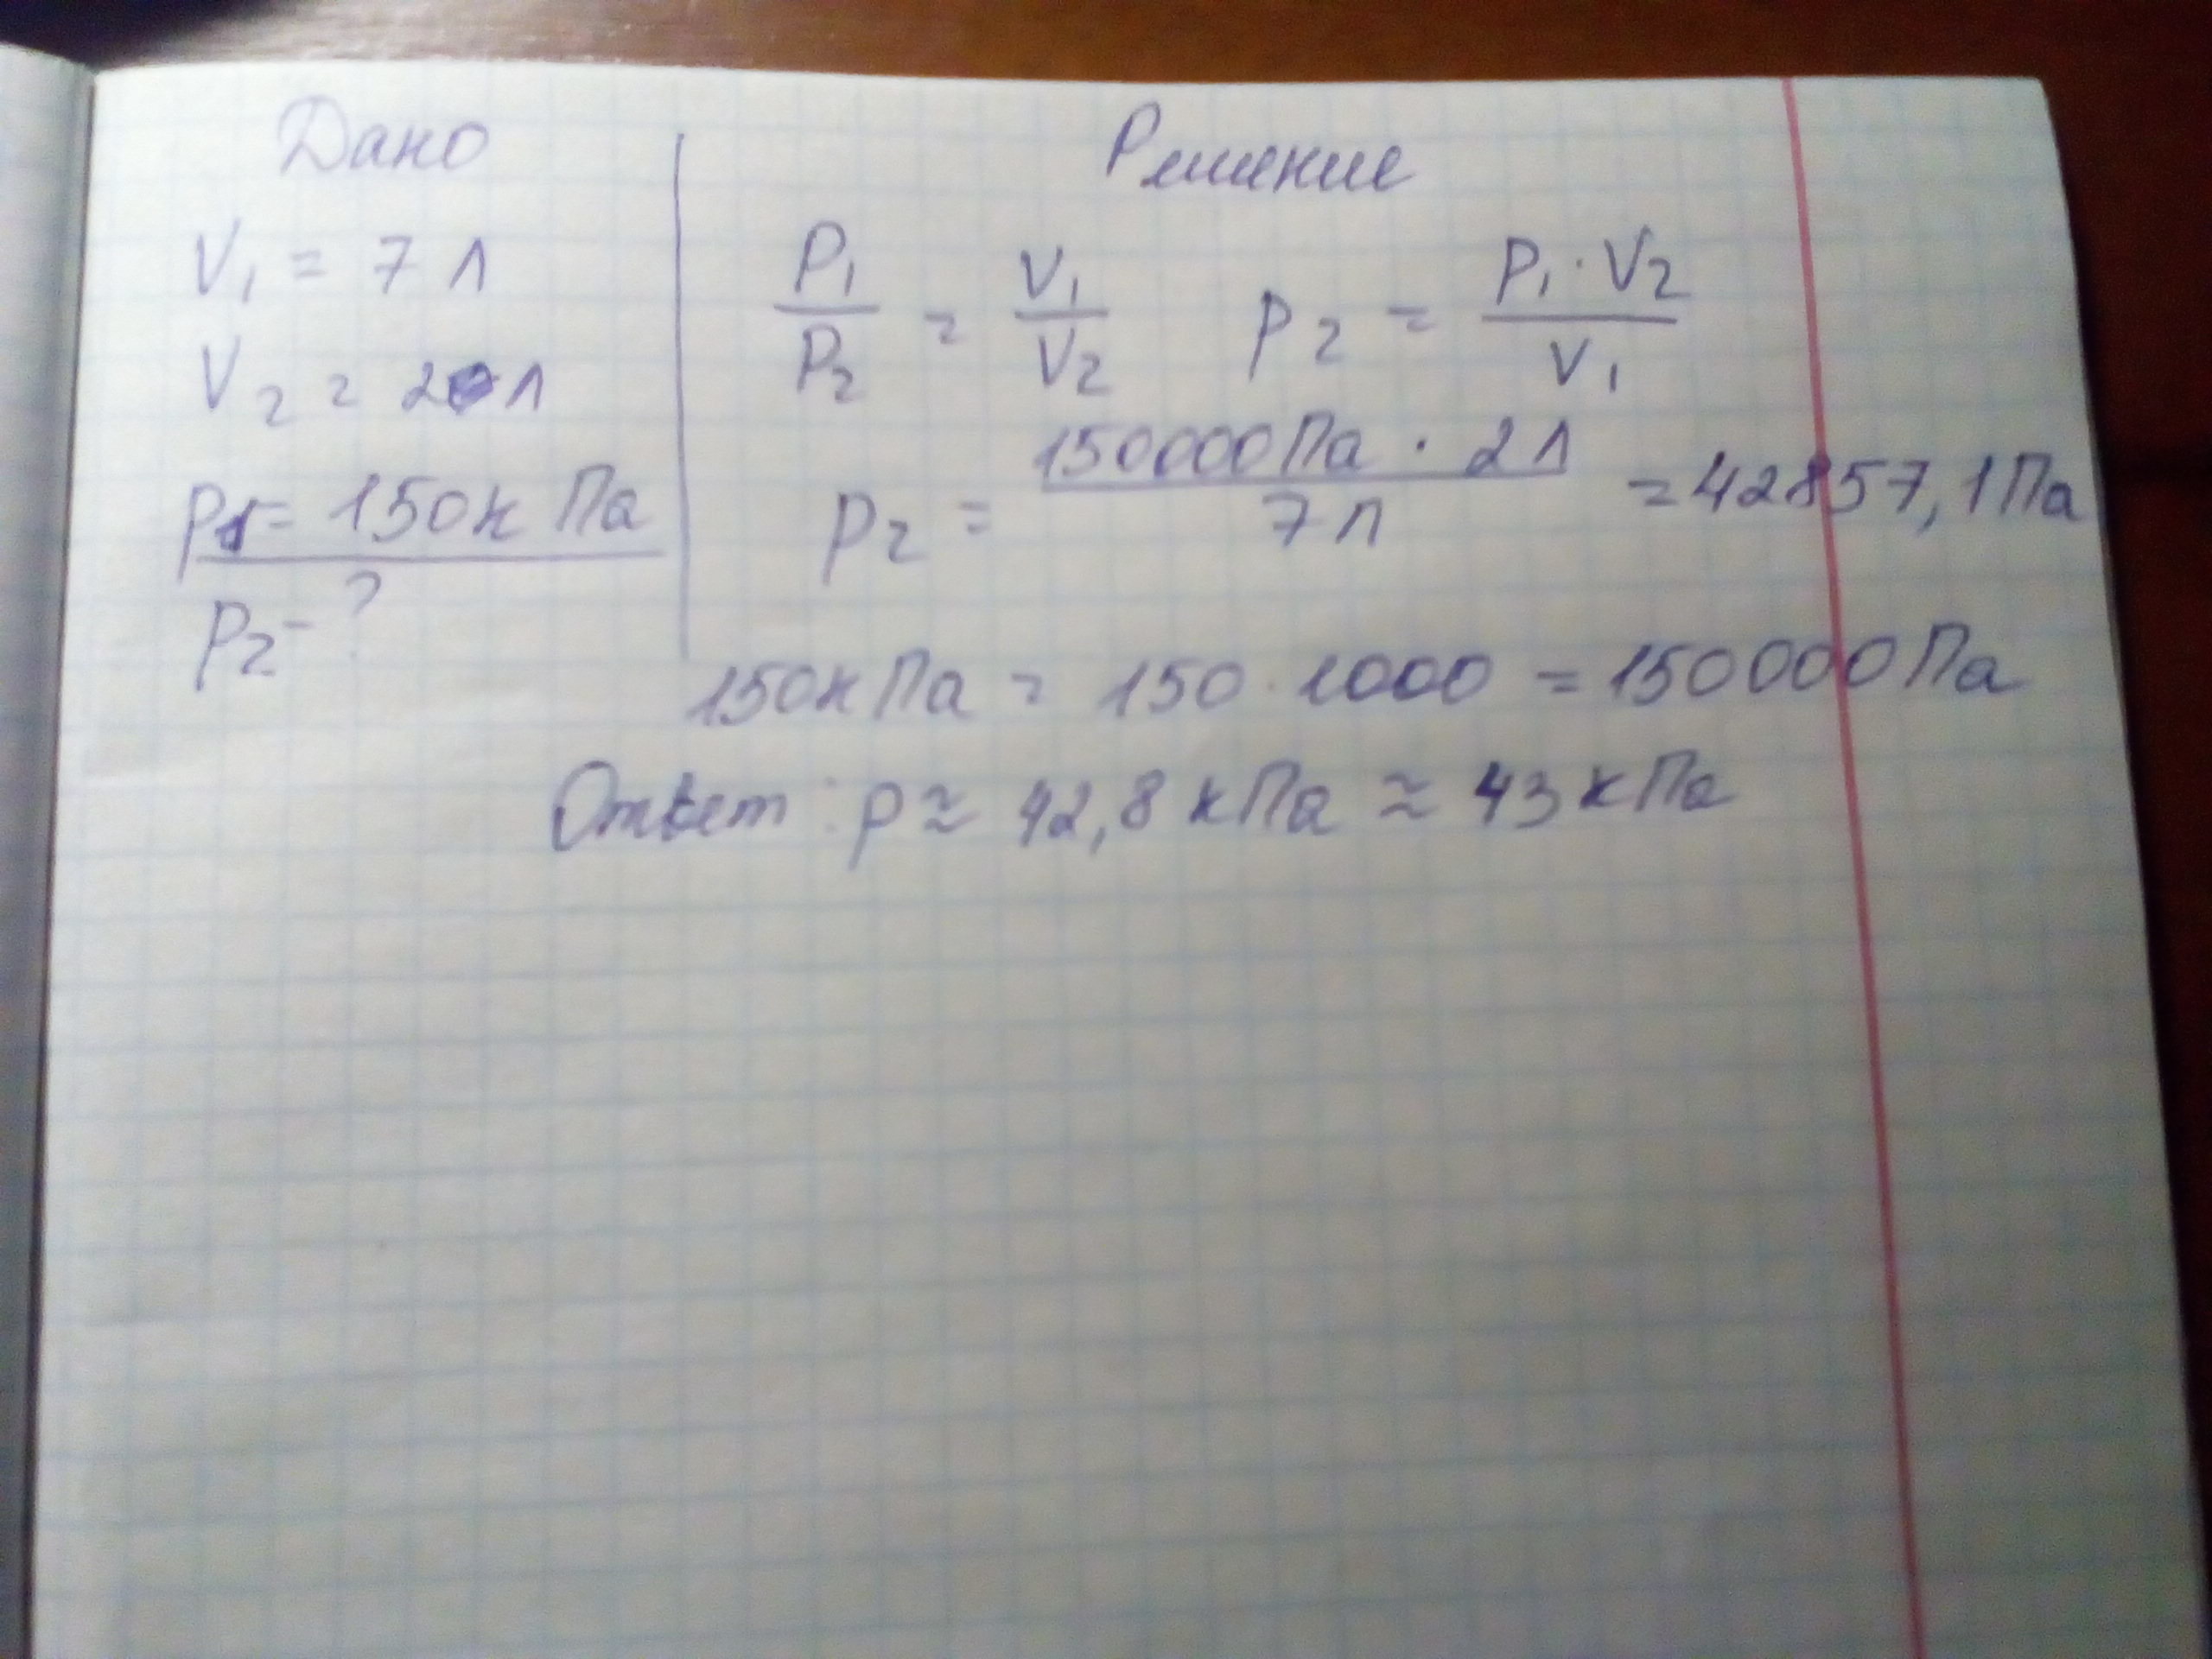 Дано
V₁ = 7 л
V₂ = 2 л
p₁ = 150 кПа
p₂ - ?
Решение
P₁/P₂ = V₁/V₂ p₂ = p₁ · V₂/V₁
p₂ = 150000Па · 2 л/7 л = 42857,1 Па
150кПа = 150 · 1000 = 150000 Па
Ответ: p ≈ 42,8 кПа ≈ 43 кПа